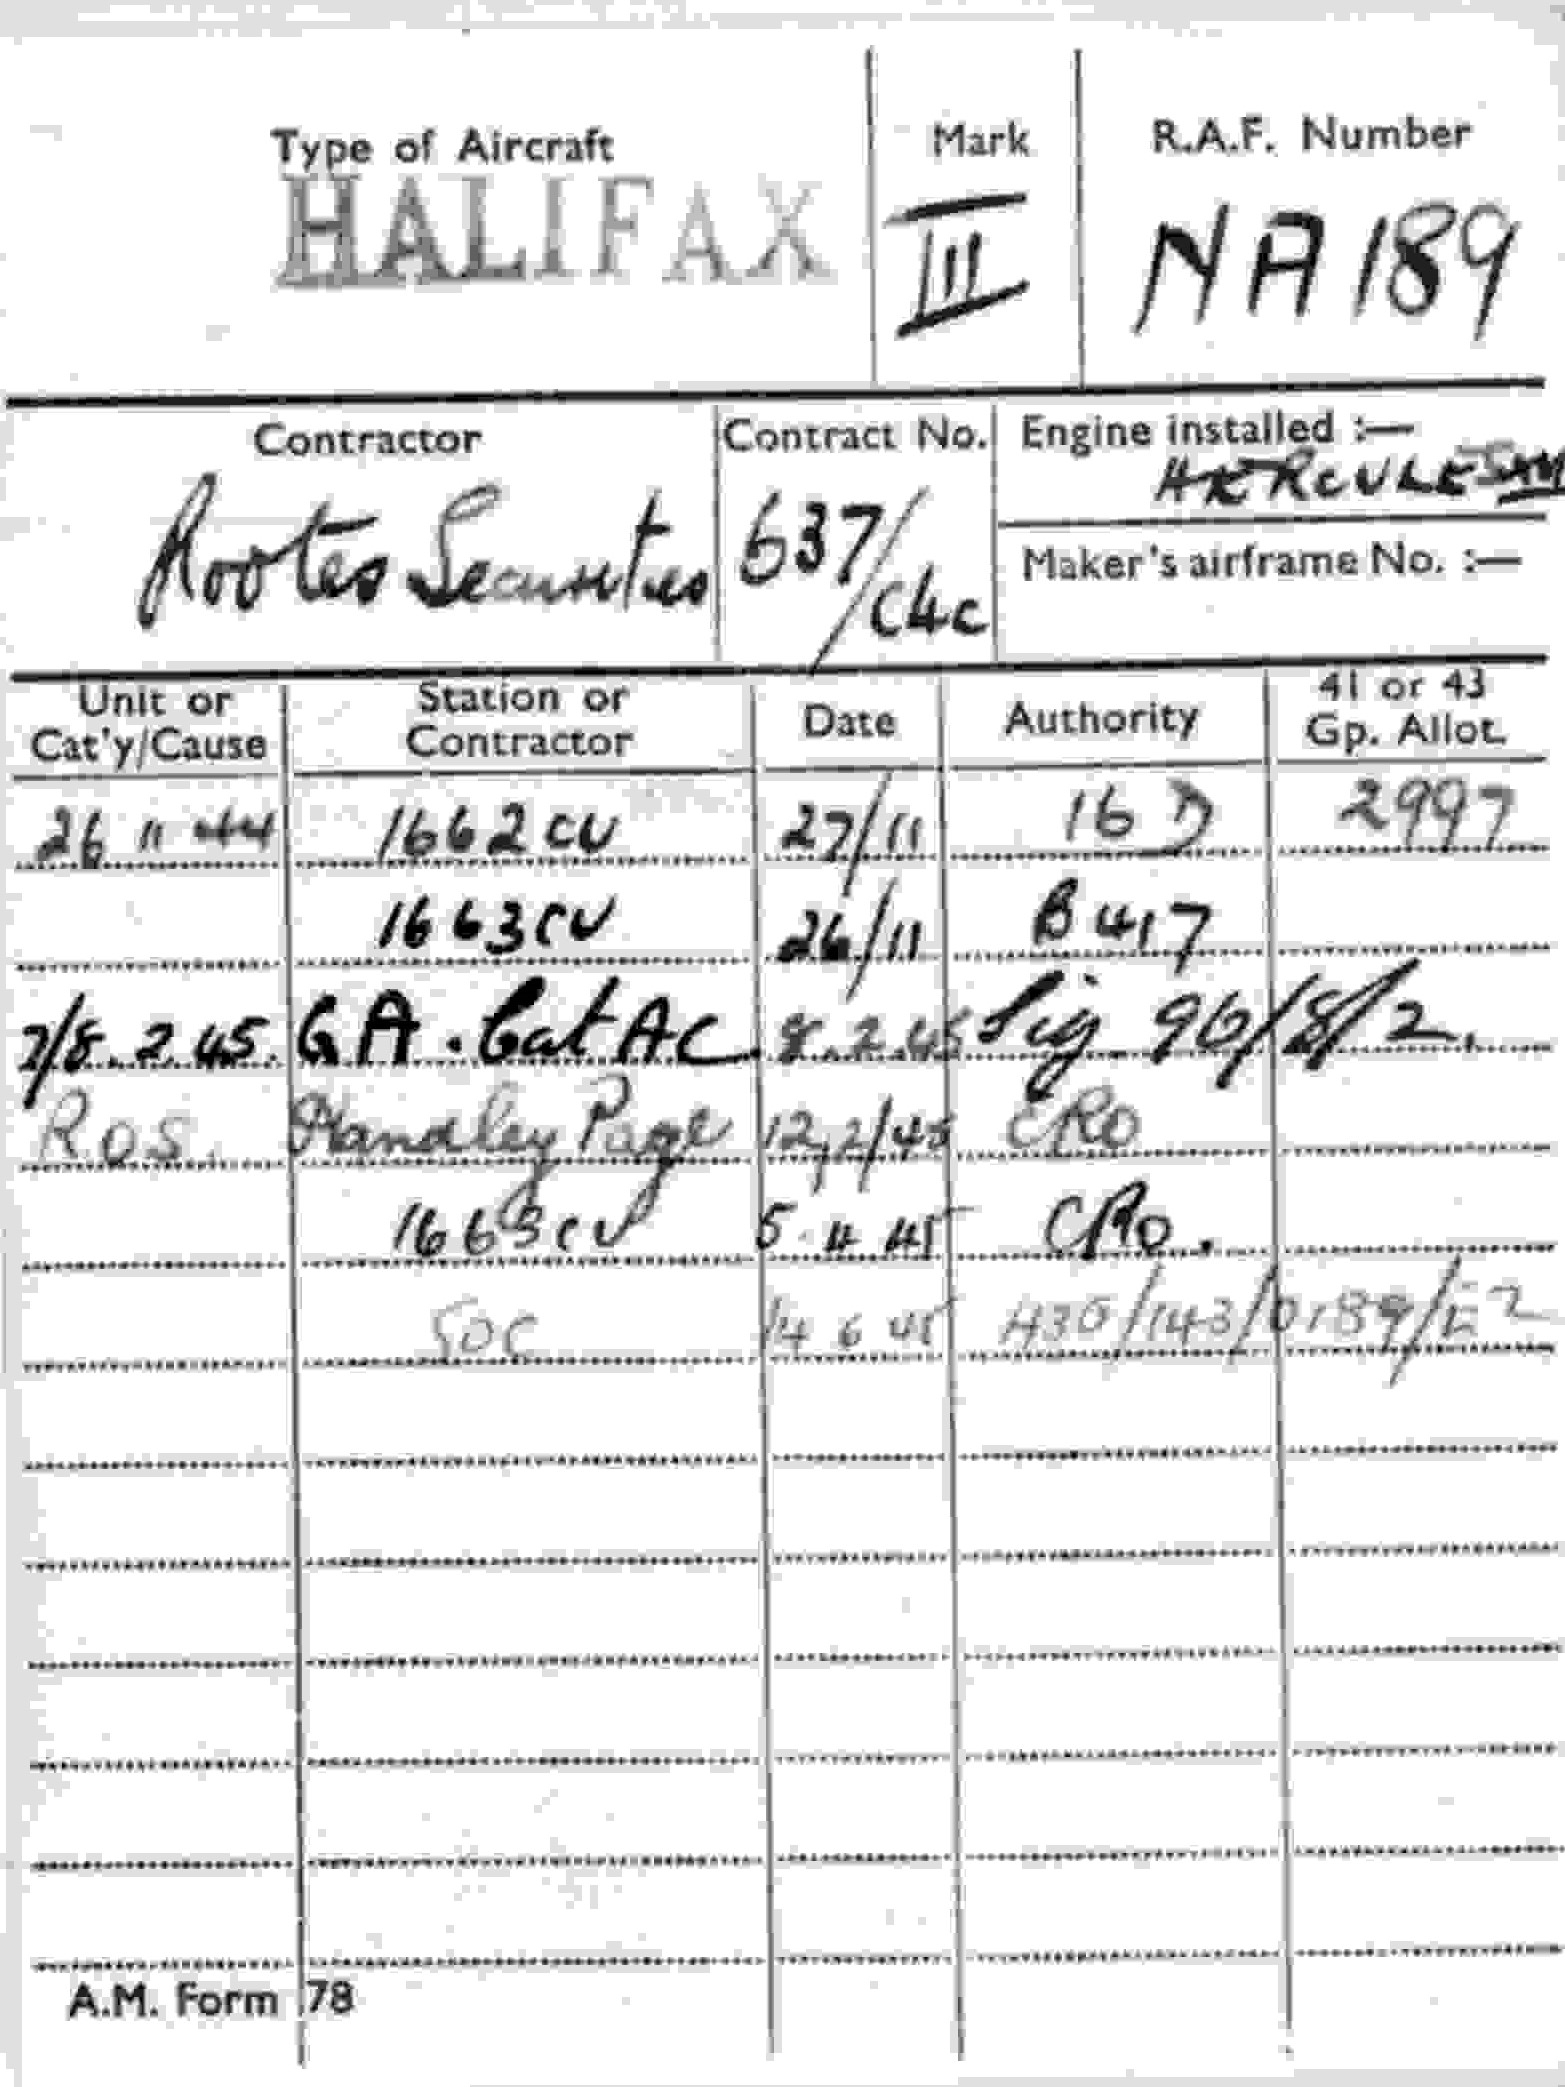 Type of Aircraft Mark R.A.F. Number
HALIFAX III NA189
Contractor Contract No. Engine installed :—
HERCULES
Rootes Securities 637/C4C Maker's airframe No. :—
Unit or Cat'y/Cause Station or Contractor Date Authority 41 or 43 Gp. Allot.
26 11 44 1662 CU 27/11 16 D 2997
1663 CU 26/11 B 417
7/8.2.45. GA. Cat AC 8.2.45 Sig 96/8/2.
R.O.S. Handley Page 12/2/45 CRO
1663 CU 5.4.45 CRO.
SOC 14 6 45
A.M. Form 78